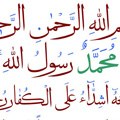 اللهِ الرَّحْمٰنِ
مُحَمَّدٌ رَسُولُ اللهِ
أَشِدَّاءُ عَلَى الْكُفَّارِ